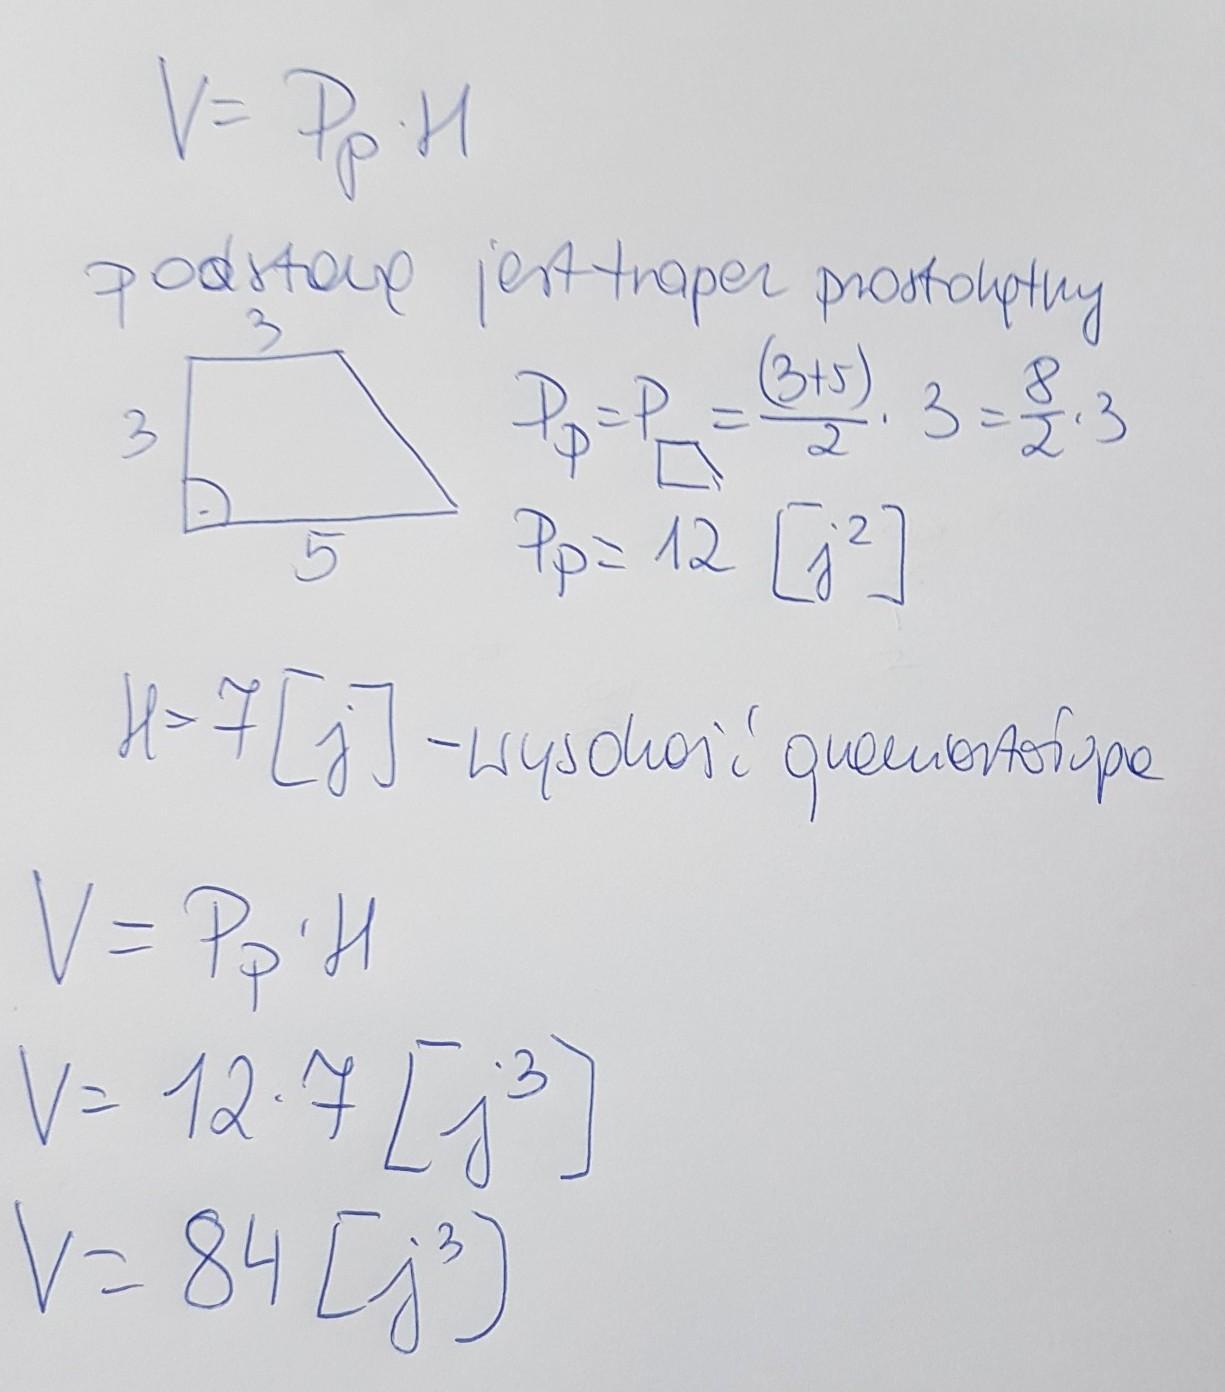 V = Pp · H
podstawą jest trapez prostokątny
3
3
5
Pp = P = (3+5)/2 · 3 = 8/2 · 3
Pp = 12 [j²]
H = 7 [j] - wysokość graniastosłupa
V = Pp · H
V = 12 · 7 [j³]
V = 84 [j³)